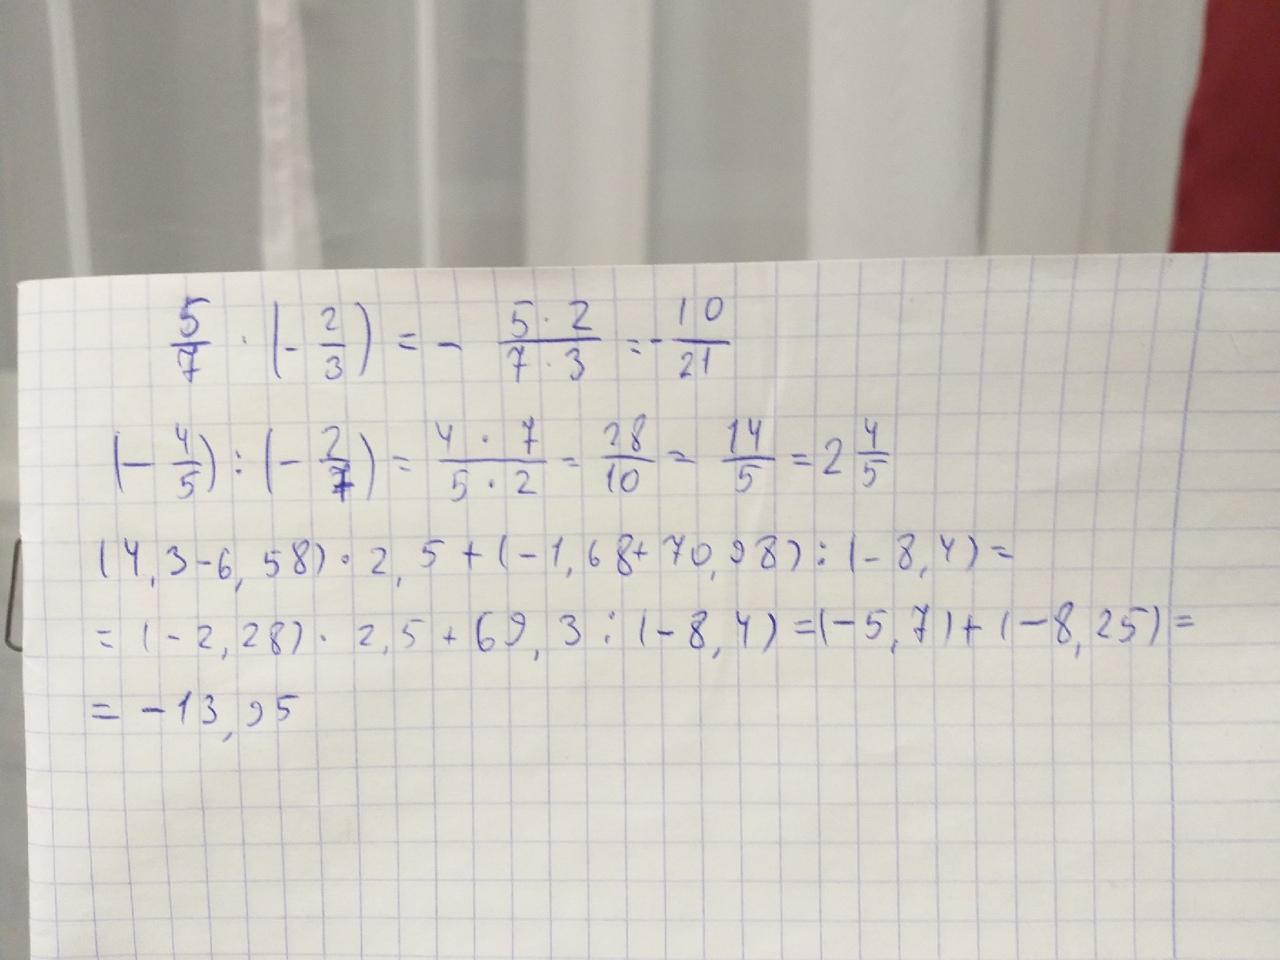 5/7 · (- 2/3) = - 5 · 2 / 7 · 3 = - 10/21
(- 4/5) : (- 2/7) = 4 · 7 / 5 · 2 = 28/10 = 14/5 = 2 4/5
(4,3-6,58) · 2,5 + (-1,68+70,98) : (-8,4) =
= (-2,28) · 2,5 + 69,3 : (-8,4) = (-5,7) + (-8,25) =
= -13,95